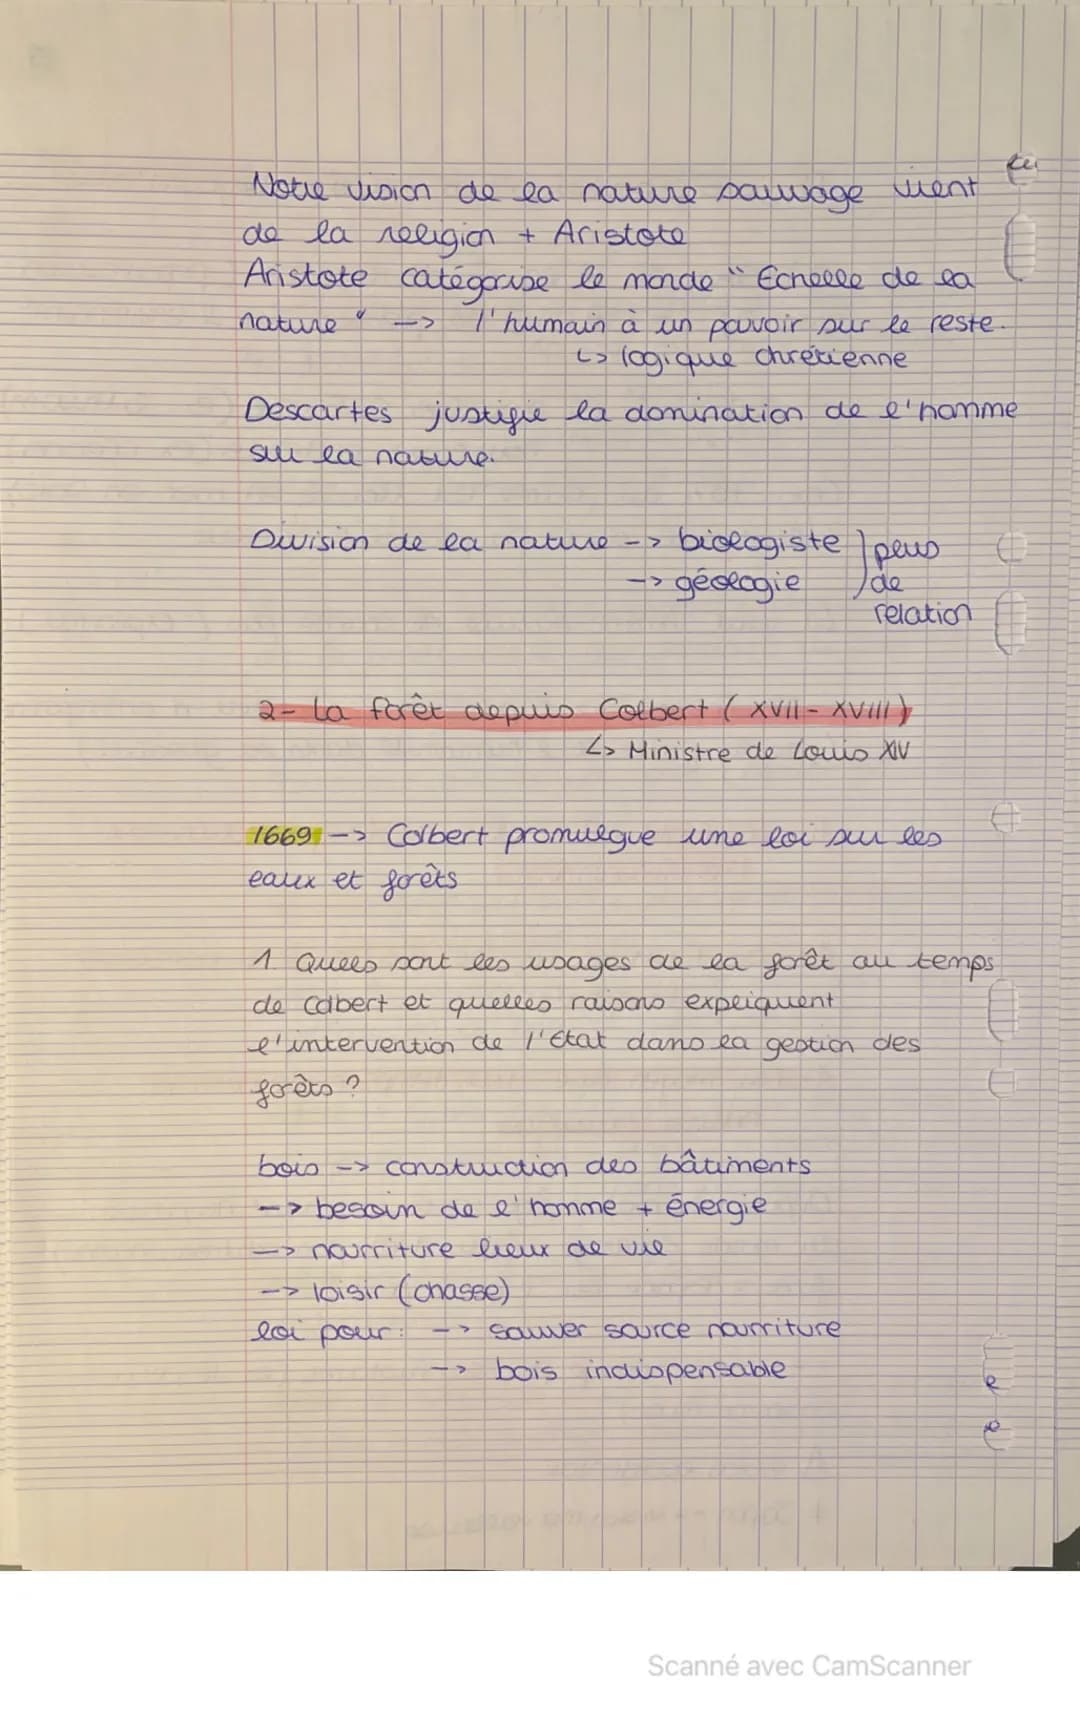 Notre vision de la nature sauvage vient
de la religion + Aristote
Aristote catégorise le monde "Echelle de la
nature" --> l'humain à un pouvoir sur le reste.
↳ logique chrétienne
Descartes justifie la domination de l'homme
sur la nature.
Division de la nature --> biologiste
--> géologie
peus
de
relation
2- La forêt depuis Colbert (XVII - XVIII)
↳ Ministre de Louis XIV
1669 --> Colbert promulgue une loi sur les
eaux et forêts
1 Quels sont les usages de la forêt au temps
de Colbert et quelles raisons expliquent
l'intervention de l'Etat dans la gestion des
forêts ?
bois --> construction des bâtiments
--> besoin de l'homme + énergie
--> nourriture lieux de vie
--> loisir (chasse)
loi pour: --> sauver source nourriture
--> bois indispensable
Scanné avec CamScanner